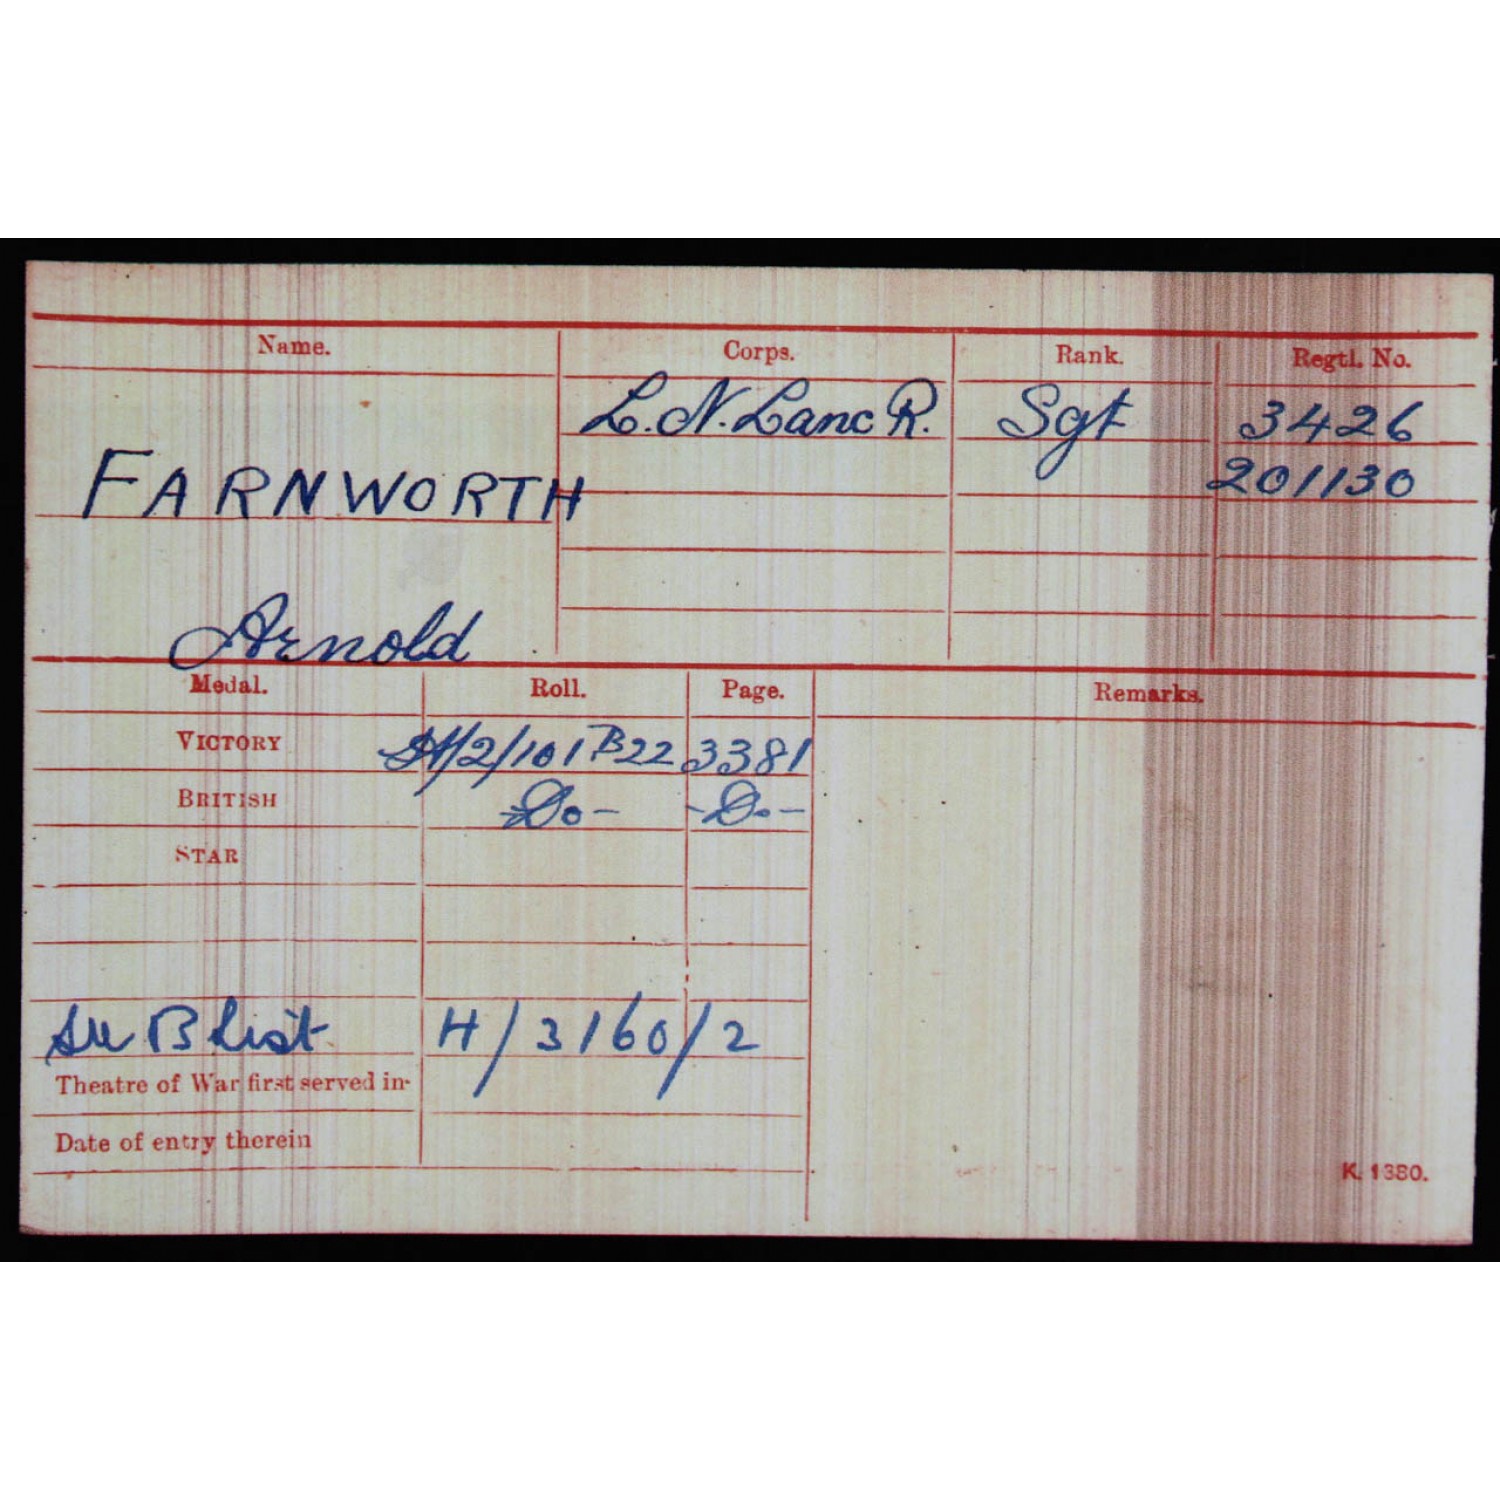 Name. Corps. Rank. Regtl. No.
L. N. Lanc R. Sgt 3426
FARNWORTH 201130
Arnold
Medal. Roll. Page. Remarks.
VICTORY H/2/101 B22 3381
BRITISH -Do- -Do-
STAR
B List H/3160/2
Theatre of War first served in-
Date of entry therein
K. 1380.